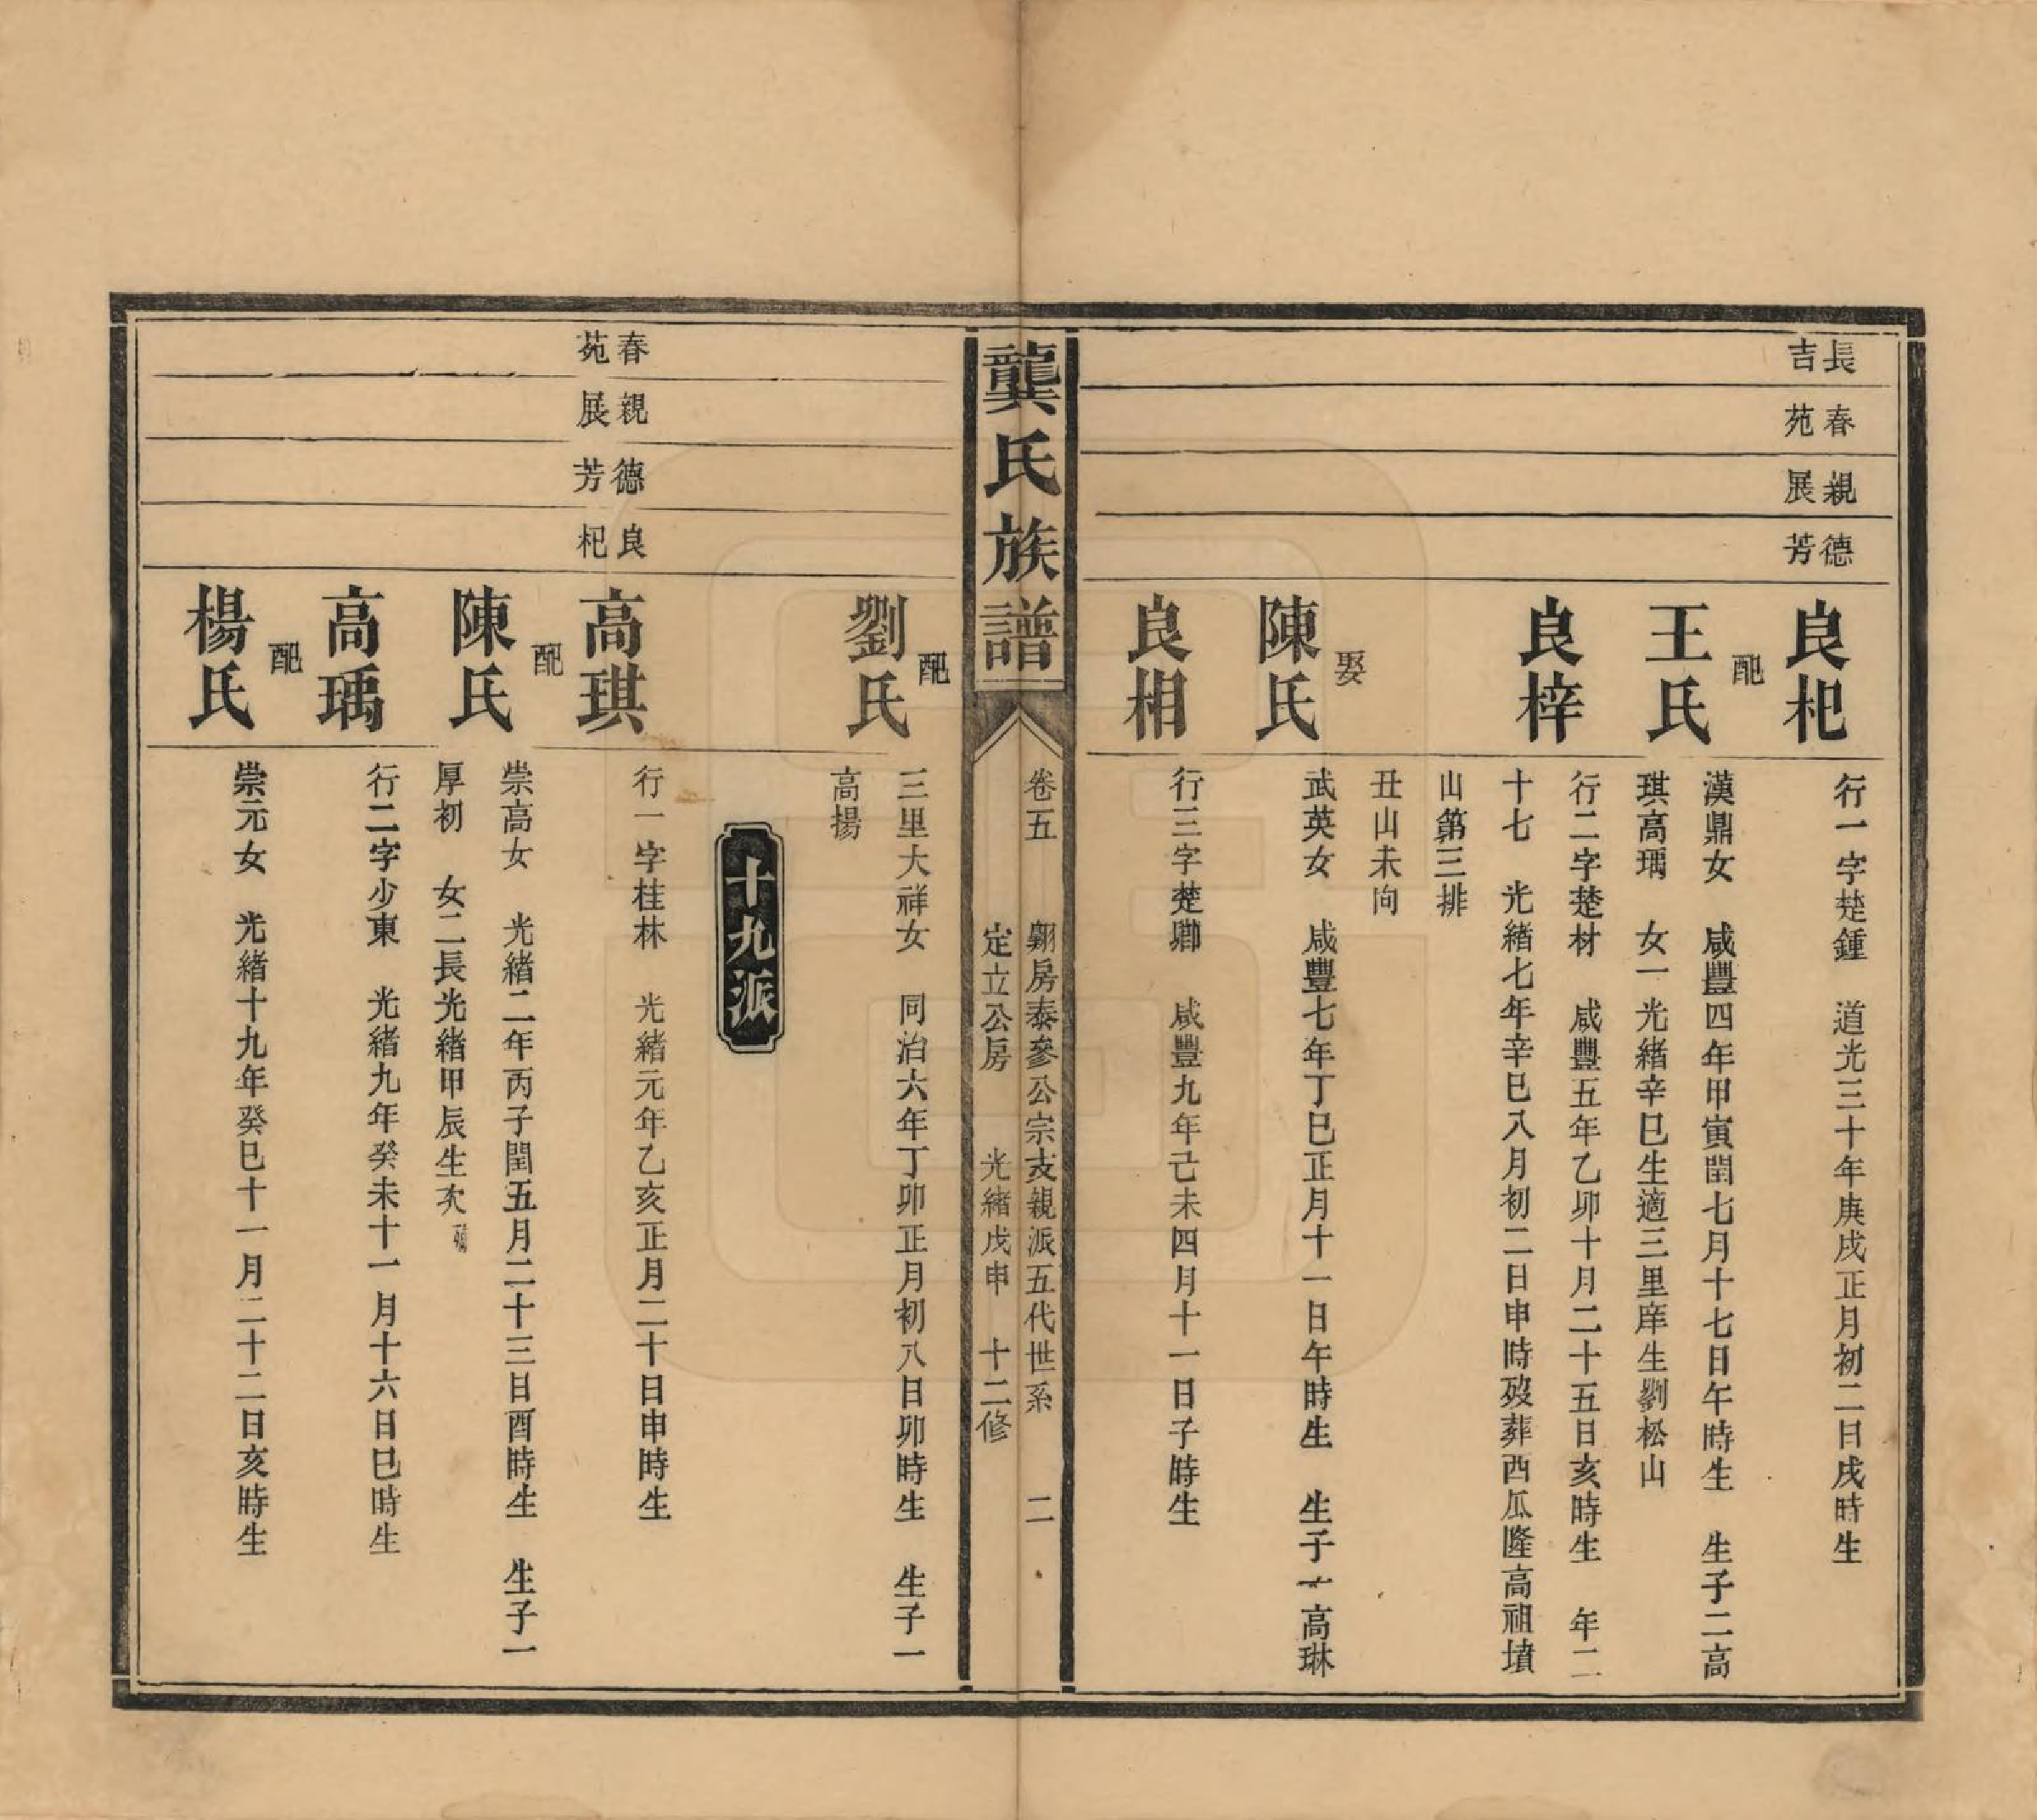 長吉
春苑
親展
德芳
良杞
行一字楚鍾　道光三十年庚戌正月初二日戌時生
配
王氏
漢鼎女　咸豐四年甲寅閏七月十七日午時生　生子二高
琪高瑀　女一光緒辛巳生適三里庠生劉松山
良梓
行二字楚材　咸豐五年乙卯十月二十五日亥時生　年二
十七　光緒七年辛巳八月初二日申時歿葬西瓜隆高祖墳
山第三排
丑山未向
娶
陳氏
武英女　咸豐七年丁巳正月十一日午時生　生子一高琳
良相
行三字楚卿　咸豐九年己未四月十一日子時生
龔氏族譜
卷五　翺房泰參公宗支親派五代世系　二
定立公房　光緒戊申　十二修
配
劉氏
三里大祥女　同治六年丁卯正月初八日卯時生　生子一
高揚
十九派
春苑
親展
德芳
良杞
高琪
行一字桂林　光緒元年乙亥正月二十日申時生
配
陳氏
崇高女　光緒二年丙子閏五月二十三日酉時生　生子一
厚初　女二長光緒甲辰生次
高瑀
行二字少東　光緒九年癸未十一月十六日巳時生
配
楊氏
崇元女　光緒十九年癸巳十一月二十二日亥時生